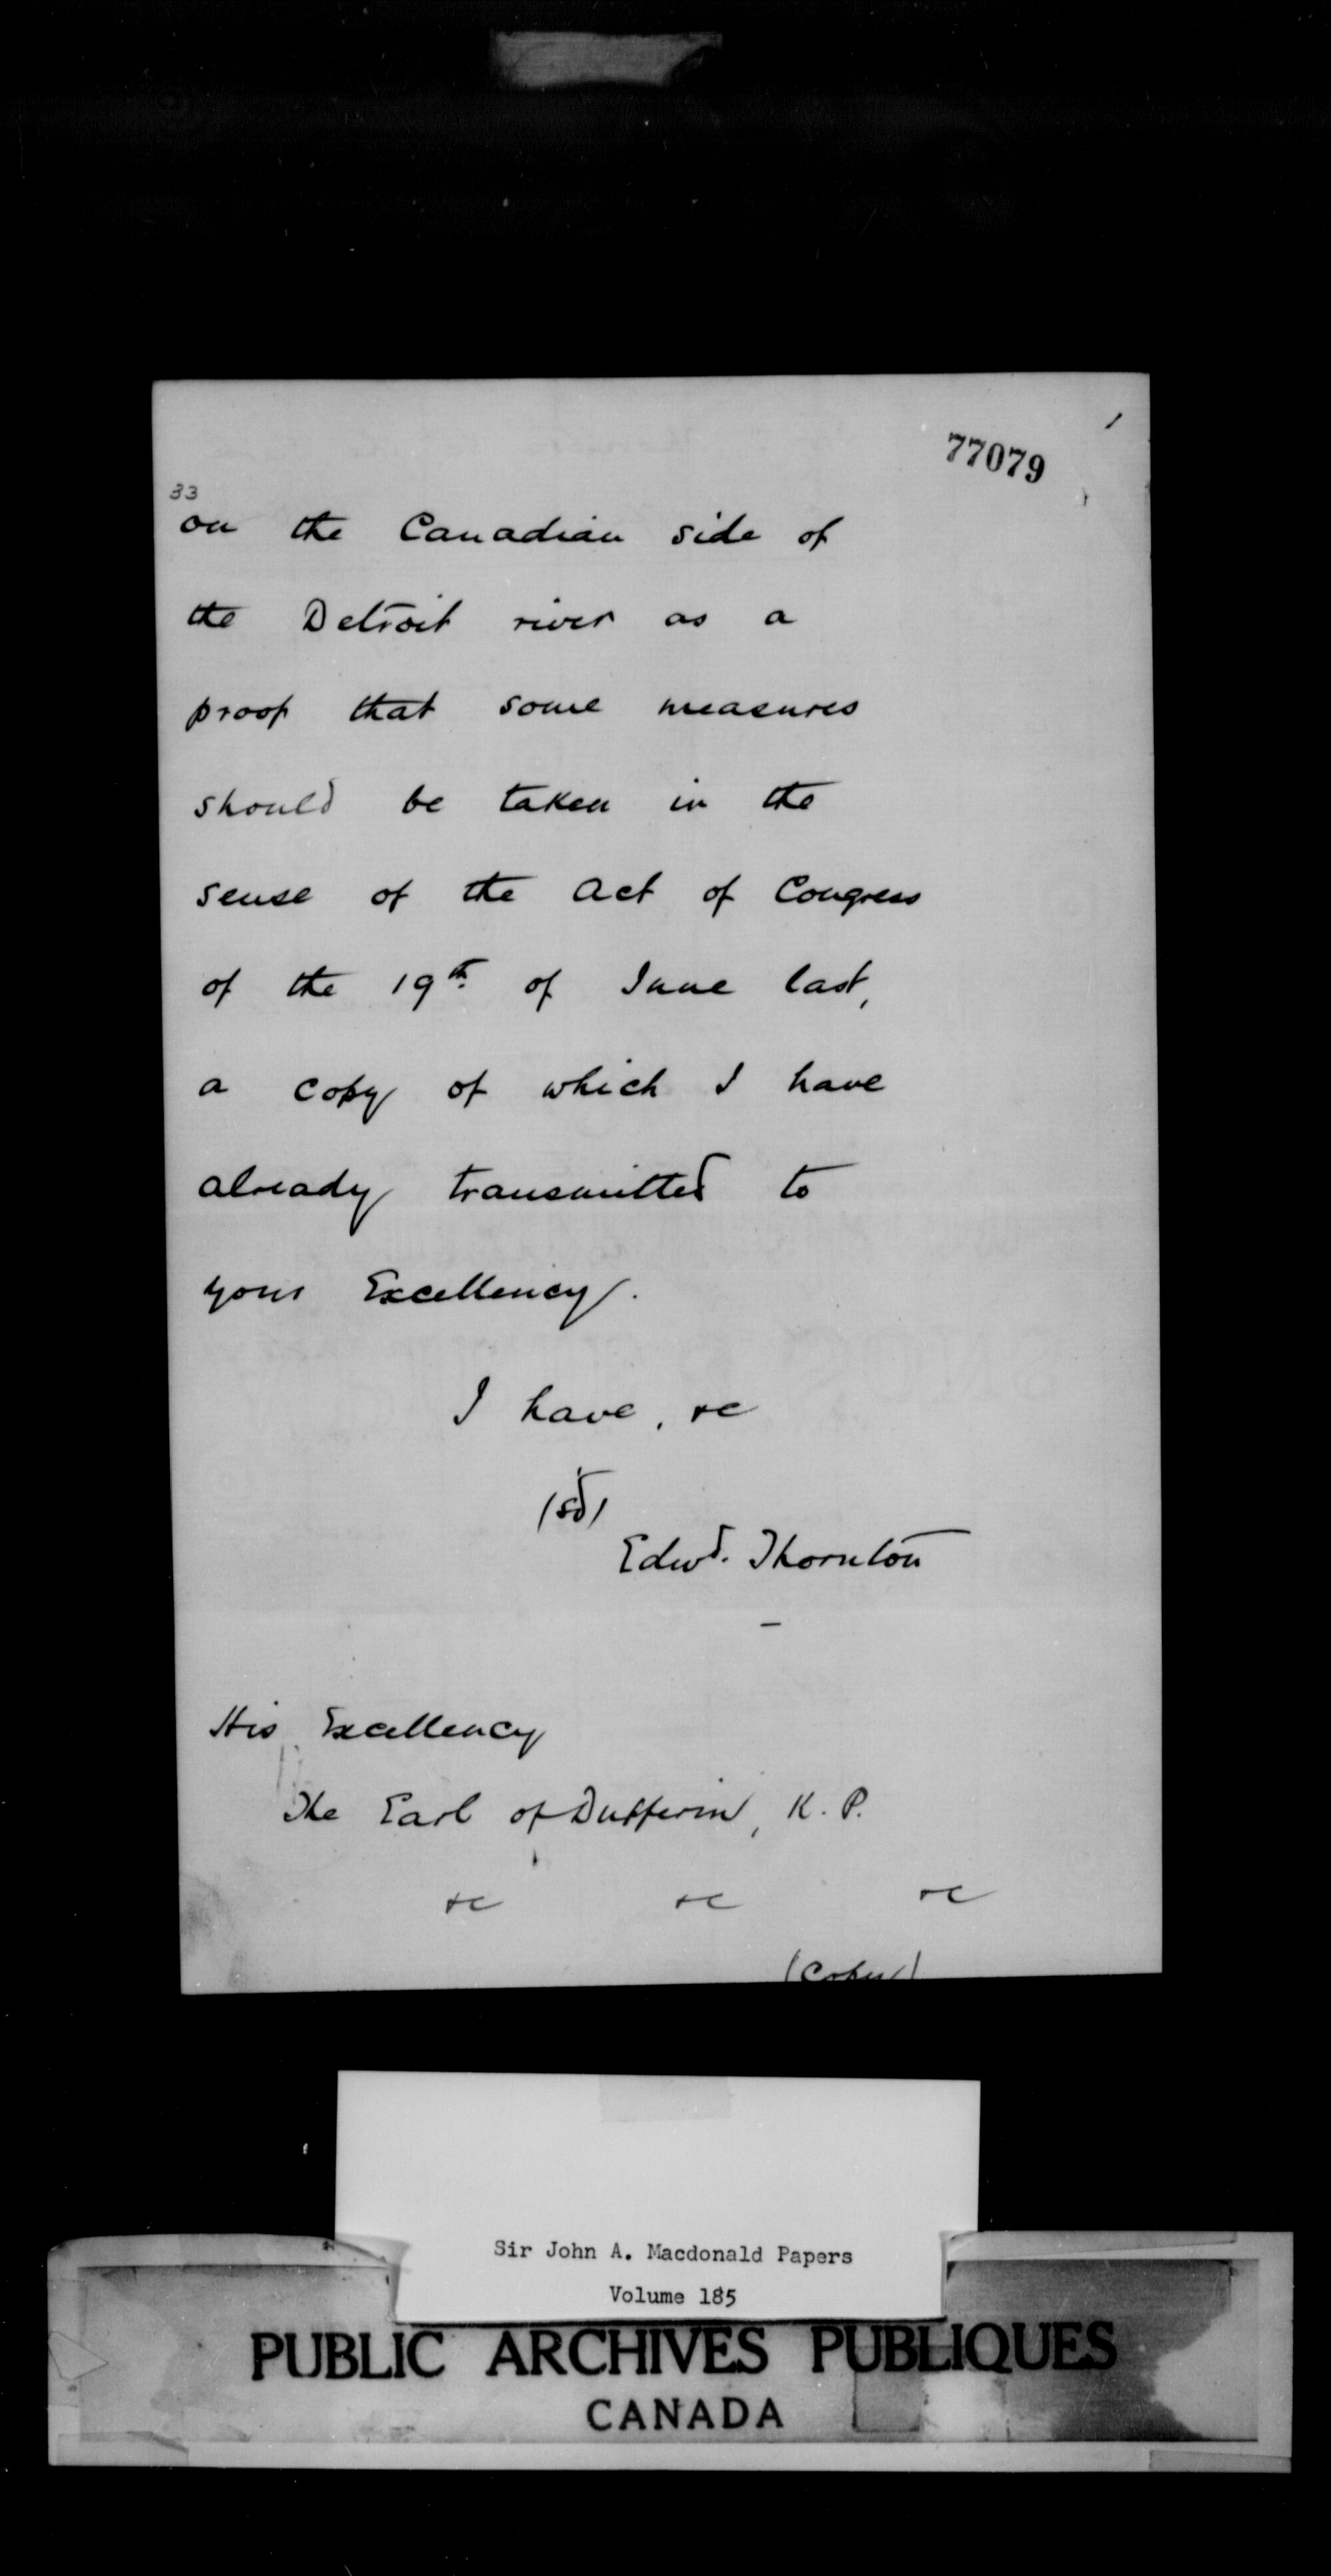 77079
33
on the Canadian side of
the Detroit river as a
proof that some measures
should be taken in the
sense of the Act of Congress
of the 19th of June last,
a copy of which I have
already transmitted to
your Excellency.
I have, &c
(sd)
Edwd. Thornton
His Excellency
The Earl of Dufferin, K. P.
&c &c &c
(Copy)
Sir John A. Macdonald Papers
Volume 185
PUBLIC ARCHIVES PUBLIQUES
CANADA